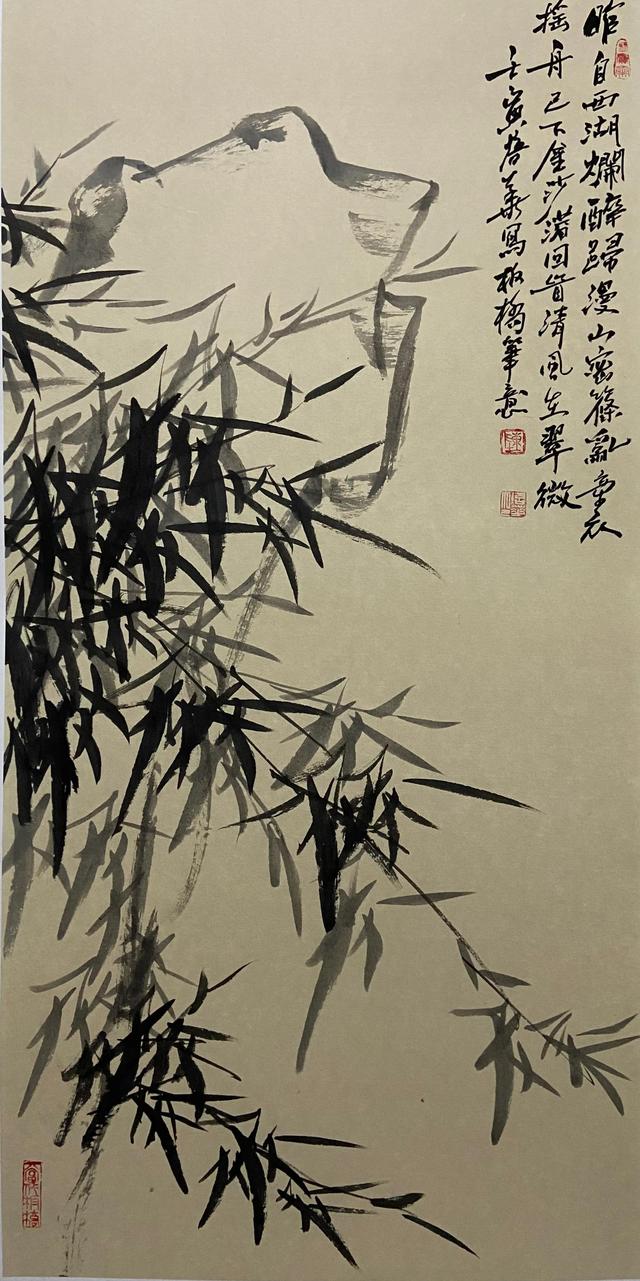 昨自西湖爛醉歸漫山密篠亂牽衣
搖舟已下金沙港回首清風在翠微
壬寅菩華寫板橋筆意